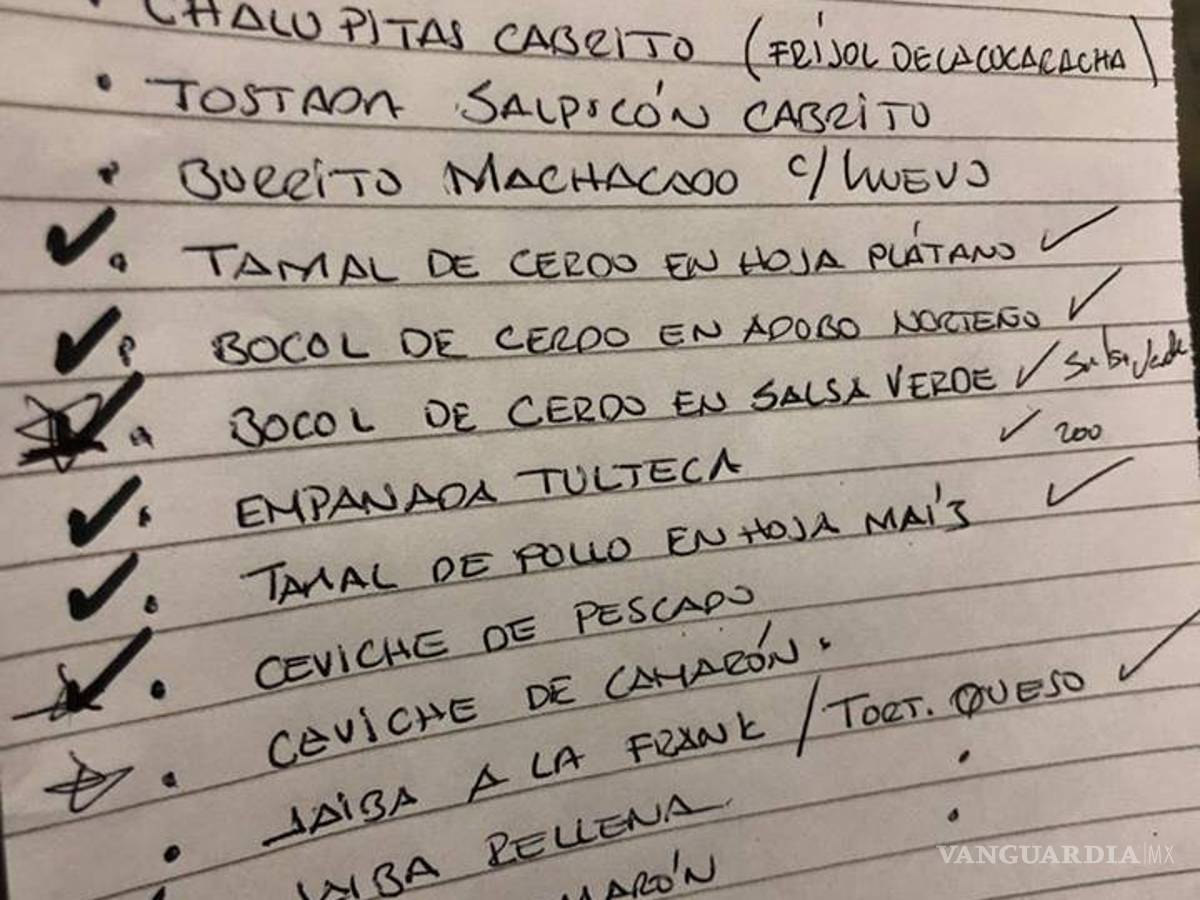 CHALUPITAS CABRITO (FRIJOL DE LA COCARACHA)
• TOSTADA SALPICÓN CABRITO
• BURRITO MACHACADO C/HUEVO
✓• TAMAL DE CERDO EN HOJA PLÁTANO ✓
✓• BOCOL DE CERDO EN ADOBO NORTEÑO ✓
✓• BOCOL DE CERDO EN SALSA VERDE ✓
✓• EMPANADA TULTECA ✓ 200
✓• TAMAL DE POLLO EN HOJA MAÍZ ✓
✓• CEVICHE DE PESCADO
• CEVICHE DE CAMARÓN •
• JAIBA A LA FRANK / TORT. QUESO ✓
JAIBA RELLENA
VANGUARDIA|MX